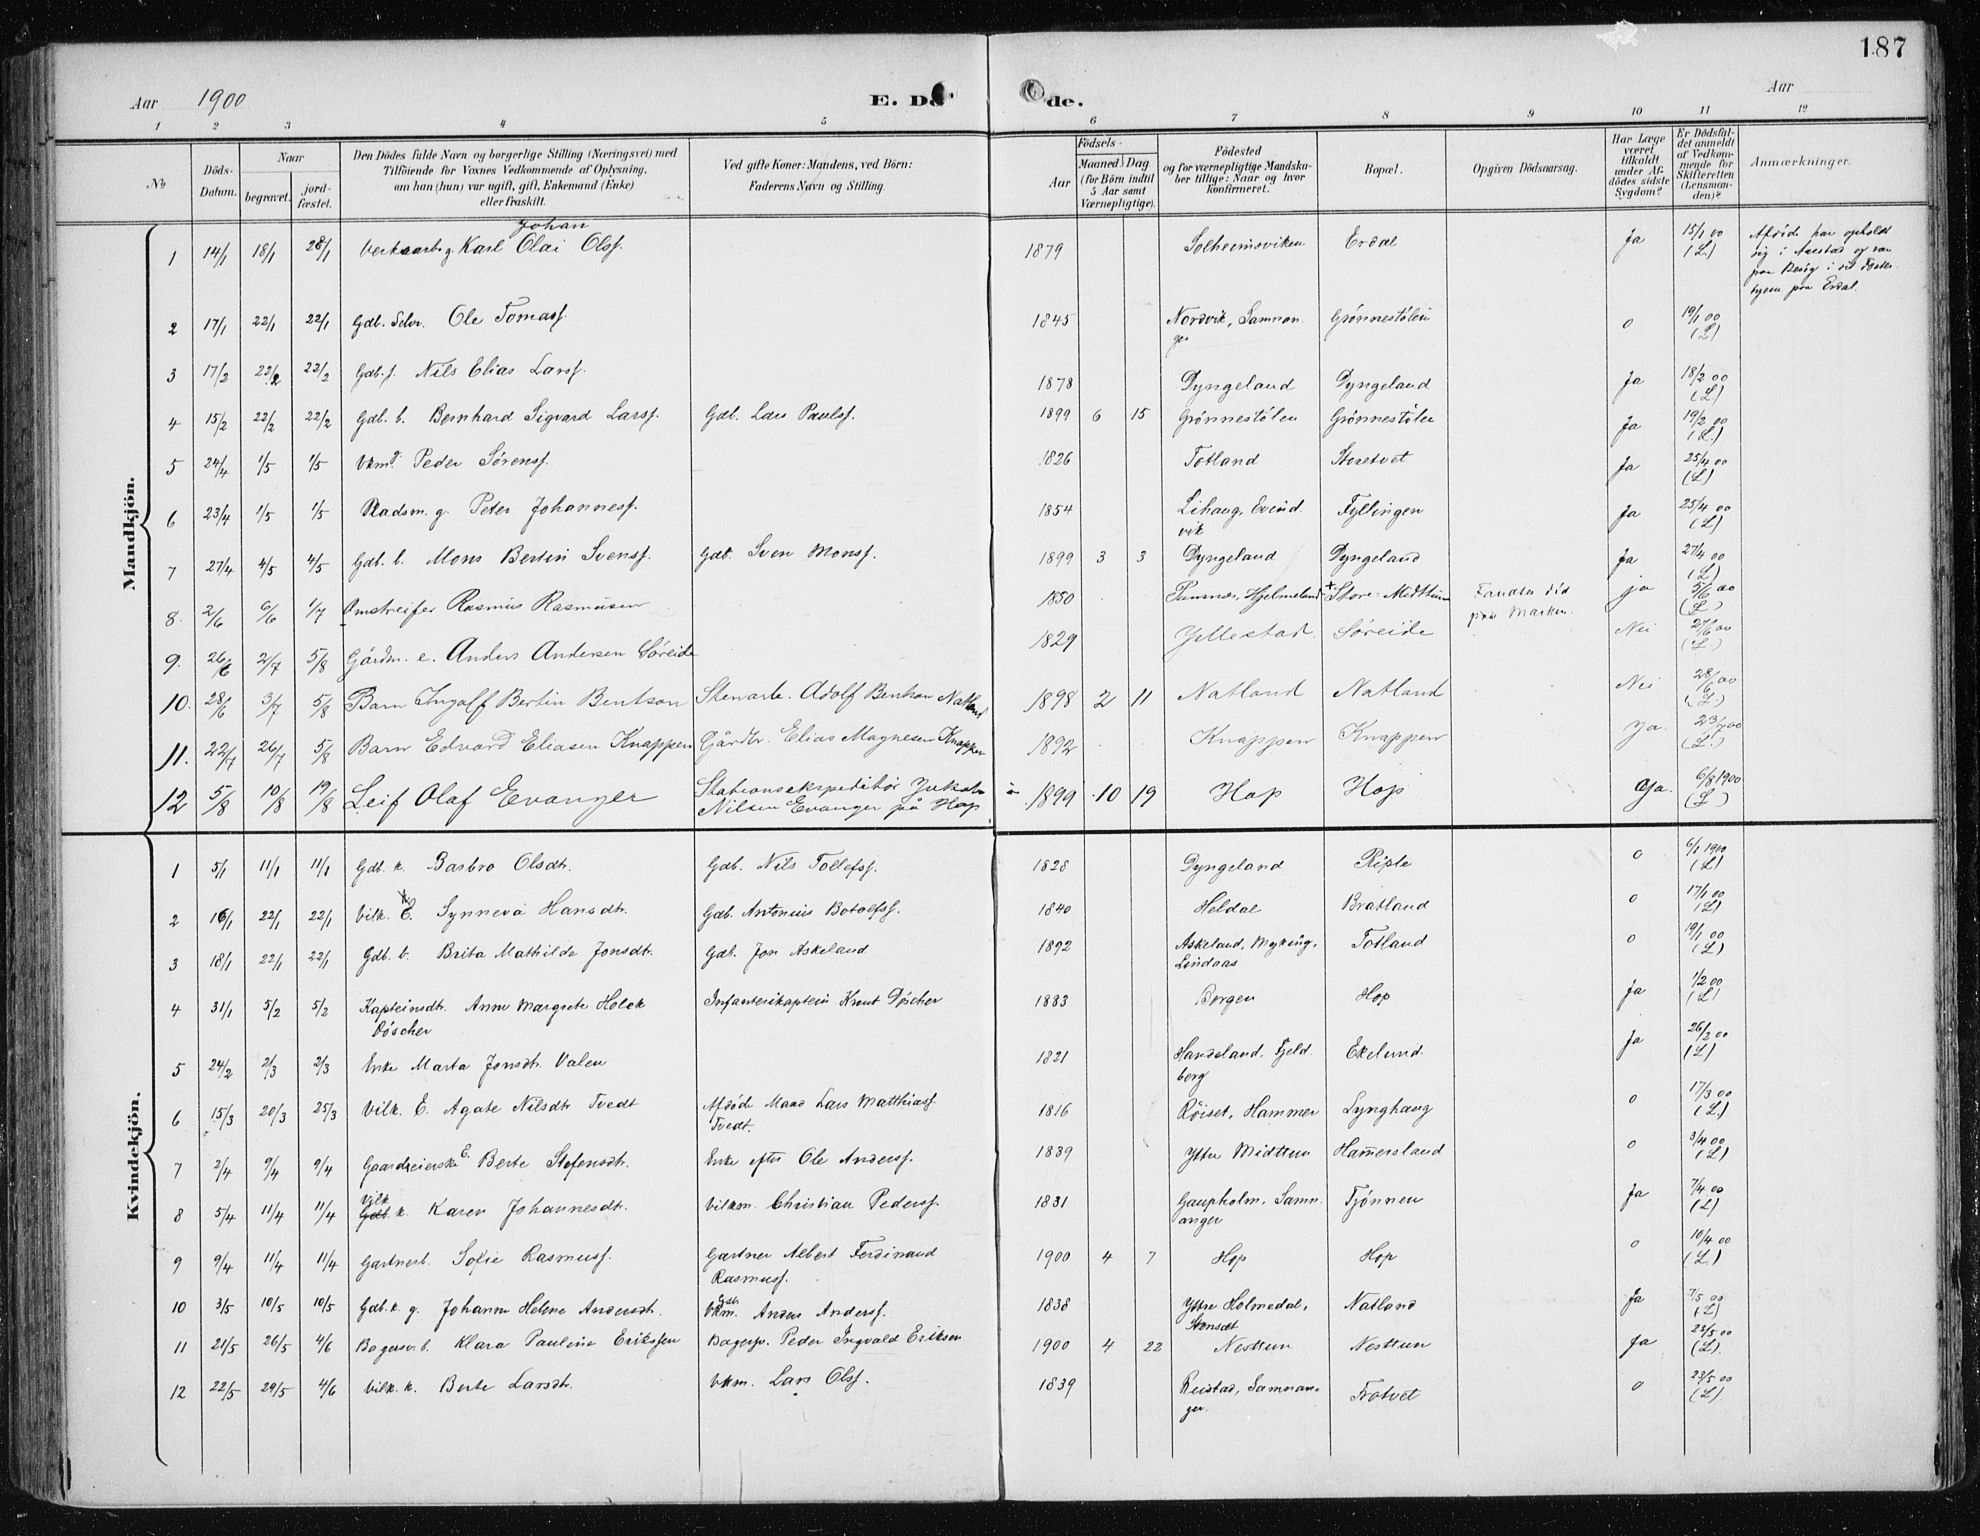 187
Aar 1900 E. Dö de. Aar
1 2 3 4 5 6 7 8 9 10 11 12
No
Döds-Datum.
Naar begravet. jord-fæstet.
Den Dödes fulde Navn og borgerlige Stilling (Næringsvei) med
Tilföiende for Voxnes Vedkommende af Oplysning,
om han (hun) var ugift, gift, Enkemand (Enke)
eller fraskilt.
Ved gifte Koner: Mandens, ved Börn:
Faderens Navn og Stilling.
Födsels-
Aar Maaned Dag
(for Börn indtil
5 Aar samt
Værnepligtige).
Födested
og for værnepligtige Mandska-
ber tillige: Naar og hvor
konfirmeret.
Bopæl.
Opgiven Dödsaarsag.
Har Læge
været
tilkaldt
under Af-
dödes sidste
Sygdom?
Er Dödsfal-
det anmeldt
af Vedkom-
mende for
Skifteretten
(Lensman-
den)?
Anmærkninger.
Mandkjön.
Johan
1 14/1 18/1 28/1 Karl Olai Olsf. 1879 Solheimsviken Erdal Ja 15/1 00 (L.) Afdöd har opholdt
sig i Aarstad og var
paa Besög i sit Foster-
hjem paa Erdal.
2 17/1 22/1 22/1 Gdb. Selv. Ole Tomasf. 1845 Nordvik, Samnan- Grønnestølen 0 19/1 00 (L)
ger
3 17/2 22/2 22/2 Gdb. s. Nils Elias Larsf. 1878 Dyngeland Dyngeland Ja 18/2 00 (L)
4 15/2 22/2 22/2 Gdb. b. Bernhard Sigvard Larsf. Gdb. Lars Paulsf. 1899 6 15 Grønnestølen Grønnestølen Ja 19/2 00 (L.)
5 24/4 1/5 1/5 Vkmd. Peder Sörensf. 1826 Totland Storetvet Ja 25/4 00 (L)
6 23/4 1/5 1/5 Pladsm. g. Peter Johannesf. 1854 Lihaug, Evind- Fyllingen Ja 25/4 00 (L)
vik
7 27/4 4/5 4/5 Gdb. b. Mons Bertin Svensf. Gdb. Sven Monsf. 1899 3 3 Dyngeland Dyngeland Ja 27/4 00 (L)
8. 2/6 6/6 1/7 Omstreifer Rasmus Rasmusen 1850 Hjelmeland Store-Midttun Fandtes död
paa Marken. ja 5/6 00 (L)
9. 26/6 2/7 5/8 Gårdm. e. Anders Andersen Søreide 1829 Yllestad Søreide Nei 27/6 00 (L.)
10. 28/6 3/7 5/8 Barn Ingolf Bertin Bentson Stenarb. Adolf Bentson Natland 1898 2 11 Natland Natland Nei 28/6 00 (L)
11. 22/7 26/7 5/8 Barn Edvard Eliasen Knappen Gårdbr. Elias Magnesen Knappen 1892 Knappen Knappen Ja. 23/7 00 (L.)
12 5/8 10/8 19/8 Leif Olaf Evanger Stationsekspeditör
Nilsen Evanger på Hop 1899 10 19 Hop Hop Ja. 6/8 1900 (L)
Kvindekjön.
1 5/1 11/1 11/1 Gdb. k. Barbro Olsdt. Gdb. Nils Tollefsf. 1828 Dyngeland Riple 0 6/1 1900 (L)
2 16/1 22/1 22/1 Vilk. E. Synneva Hansdt. Gdb. Antonius Botolfsf. 1840 Heldal Bratland 0 17/1 00 (L)
3 18/1 22/1 22/1 Gdb. b. Brita Mathilde Jonsdt. Gdb. Jon Askeland 1892 Askeland, Myking, Totland 0 19/1 00 (L)
Lindaas
4 31/1 5/2 5/2 Kapteinsdt. Anna Margrete Holck Infanterikaptein Knut Döscher 1883 Bergen Hop Ja 1/2 00 (L)
Döscher
5 24/2 2/3 2/3 Enke Marta Jonsdt. Valen 1821 Handeland, Fjeld- Ekelund Ja 26/2 00 (L)
berg
6 15/3 20/3 25/3 Vilk. E. Agate Nilsdt. Tvedt Afdöde Mand Lars Matthiasf 1816 Röiset, Hammer Lynghaug 0 17/3 00 (L)
Tvedt.
7 2/4 9/4 9/4 Gaardeierske E. Berte Stefensdt. Enke efter Ole Andersf. 1839 Ytre Midttun Hamersland 0 3/4 00 (L)
Vilk
8 5/4 11/4 11/4 Gdb. k. Karen Johannesdt. Vilkm. Christian Pedersf. 1831 Gaupholm, Samn- Tjönnen Ja 7/4 00 (L)
anger
9 9/4 11/4 11/4 Gartnerb. Sofie Rasmusf. Gartner Albert Ferdinand 1900 4 7 Hop Hop 0 10/4 00 (L)
Rasmusf.
10 3/5 10/5 10/5 Gdb. k. g. Johanne Helene Andersdt. Vkm. Anders Andersf. 1838 Ytre Holmedal, Natland Ja 7/5 00 (L)
11 21/5 26/5 4/6 Bagersv. b. Klara Pauline Eriksen Bagersv. Peder Ingvald Eriksen 1900 4 22 Nesttun Nesttun Ja 22/5 00 (L).
12 22/5 29/5 4/6 Vilk. k. Berte Larsdt. Vkm. Lars Olsf. 1839 Reistad, Samnan- Trotvet 0 23/5 00 (L)
ger.